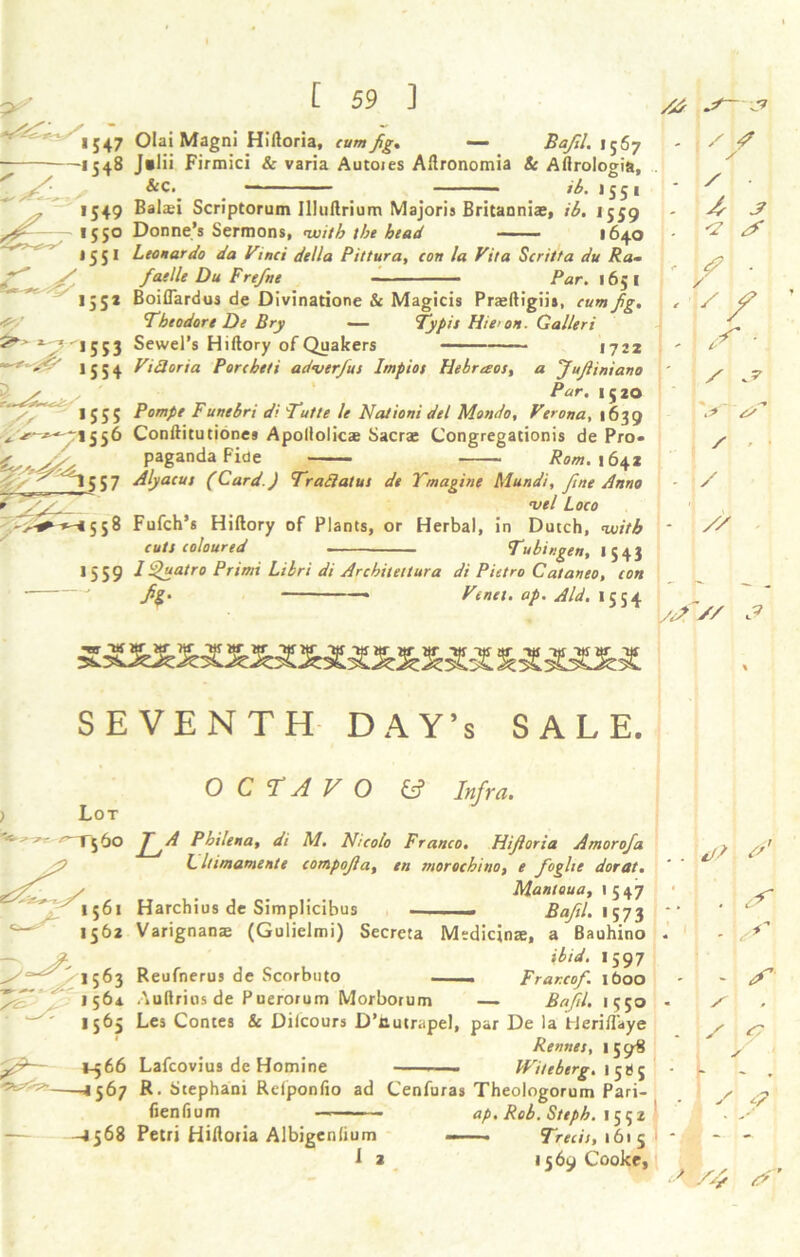 [ 59 ]
1547 Olai Magni Hiſtoria, cum fig. — Baſil. 1567
1548 Julii Firmici & varia Autores Aſtronomia & Aſtrologia,
&c. —— —— ib. 1551
1549 Balæi Scriptorum Illuſtrium Majoris Britanniæ, ib. 1559
1550 Donne's Sermons, with the head —— 1640
1551 Leonardo da Vinci della Pittura, con la Vita Scritta du Ra-
faelle Du Freſne —— Par. 1651
1552 Boiſſardus de Divinatione & Magicis Præſtigiis, cum fig.
Theodore De Bry — Typis Hieron. Galleri
1553 Sewel's Hiſtory of Quakers —— 1722
1554 Victoria Porcheti adverſus Impios Hebræos, a Juſtiniano
Par. 1520
1555 Pompe Funebri di Tutte le Nationi del Mondo, Verona, 1639
1556 Conſtitutiones Apoſtolicæ Sacræ Congregationis de Pro-
paganda Fide —— —— Rom. 1642
1557 Alyacus (Card.) Tractatus de Ymagine Mundi, ſine Anno
vel Loco
1558 Fuſch's Hiſtory of Plants, or Herbal, in Dutch, with
cuts coloured —— Tubingen, 1543
1559 I Quatro Primi Libri di Architettura di Pietro Cataneo, con
fig. —— Venet. ap. Ald. 1554
SEVENTH DAY's SALE.
OCTAVO & Infra.
LOT
1560 LA Philena, di M. Nicolo Franco. Hiſtoria Amoroſa
Ultimamente compoſta, en morochino, e foglie dorat.
Mantoua, 1547
1561 Harchius de Simplicibus —— Baſil. 1573
1562 Varignanæ (Gulielmi) Secreta Medicinæ, a Bauhino
ibid. 1597
1563 Reuſnerus de Scorbuto —— Francof. 1600
1564 Auſtrius de Puerorum Morborum — Baſil. 1550
1565 Les Contes & Diſcours D'Eutrapel, par De la Heriſſaye
Rennes, 1598
1566 Laſcovius de Homine —— Witeberg. 1585
1567 R. Stephani Reſponſio ad Cenſuras Theologorum Pari-
ſienſium —— ap. Rob. Steph. 1552
1568 Petri Hiſtoria Albigenſium —— Trecis, 1615
I 2 1569 Cooke,